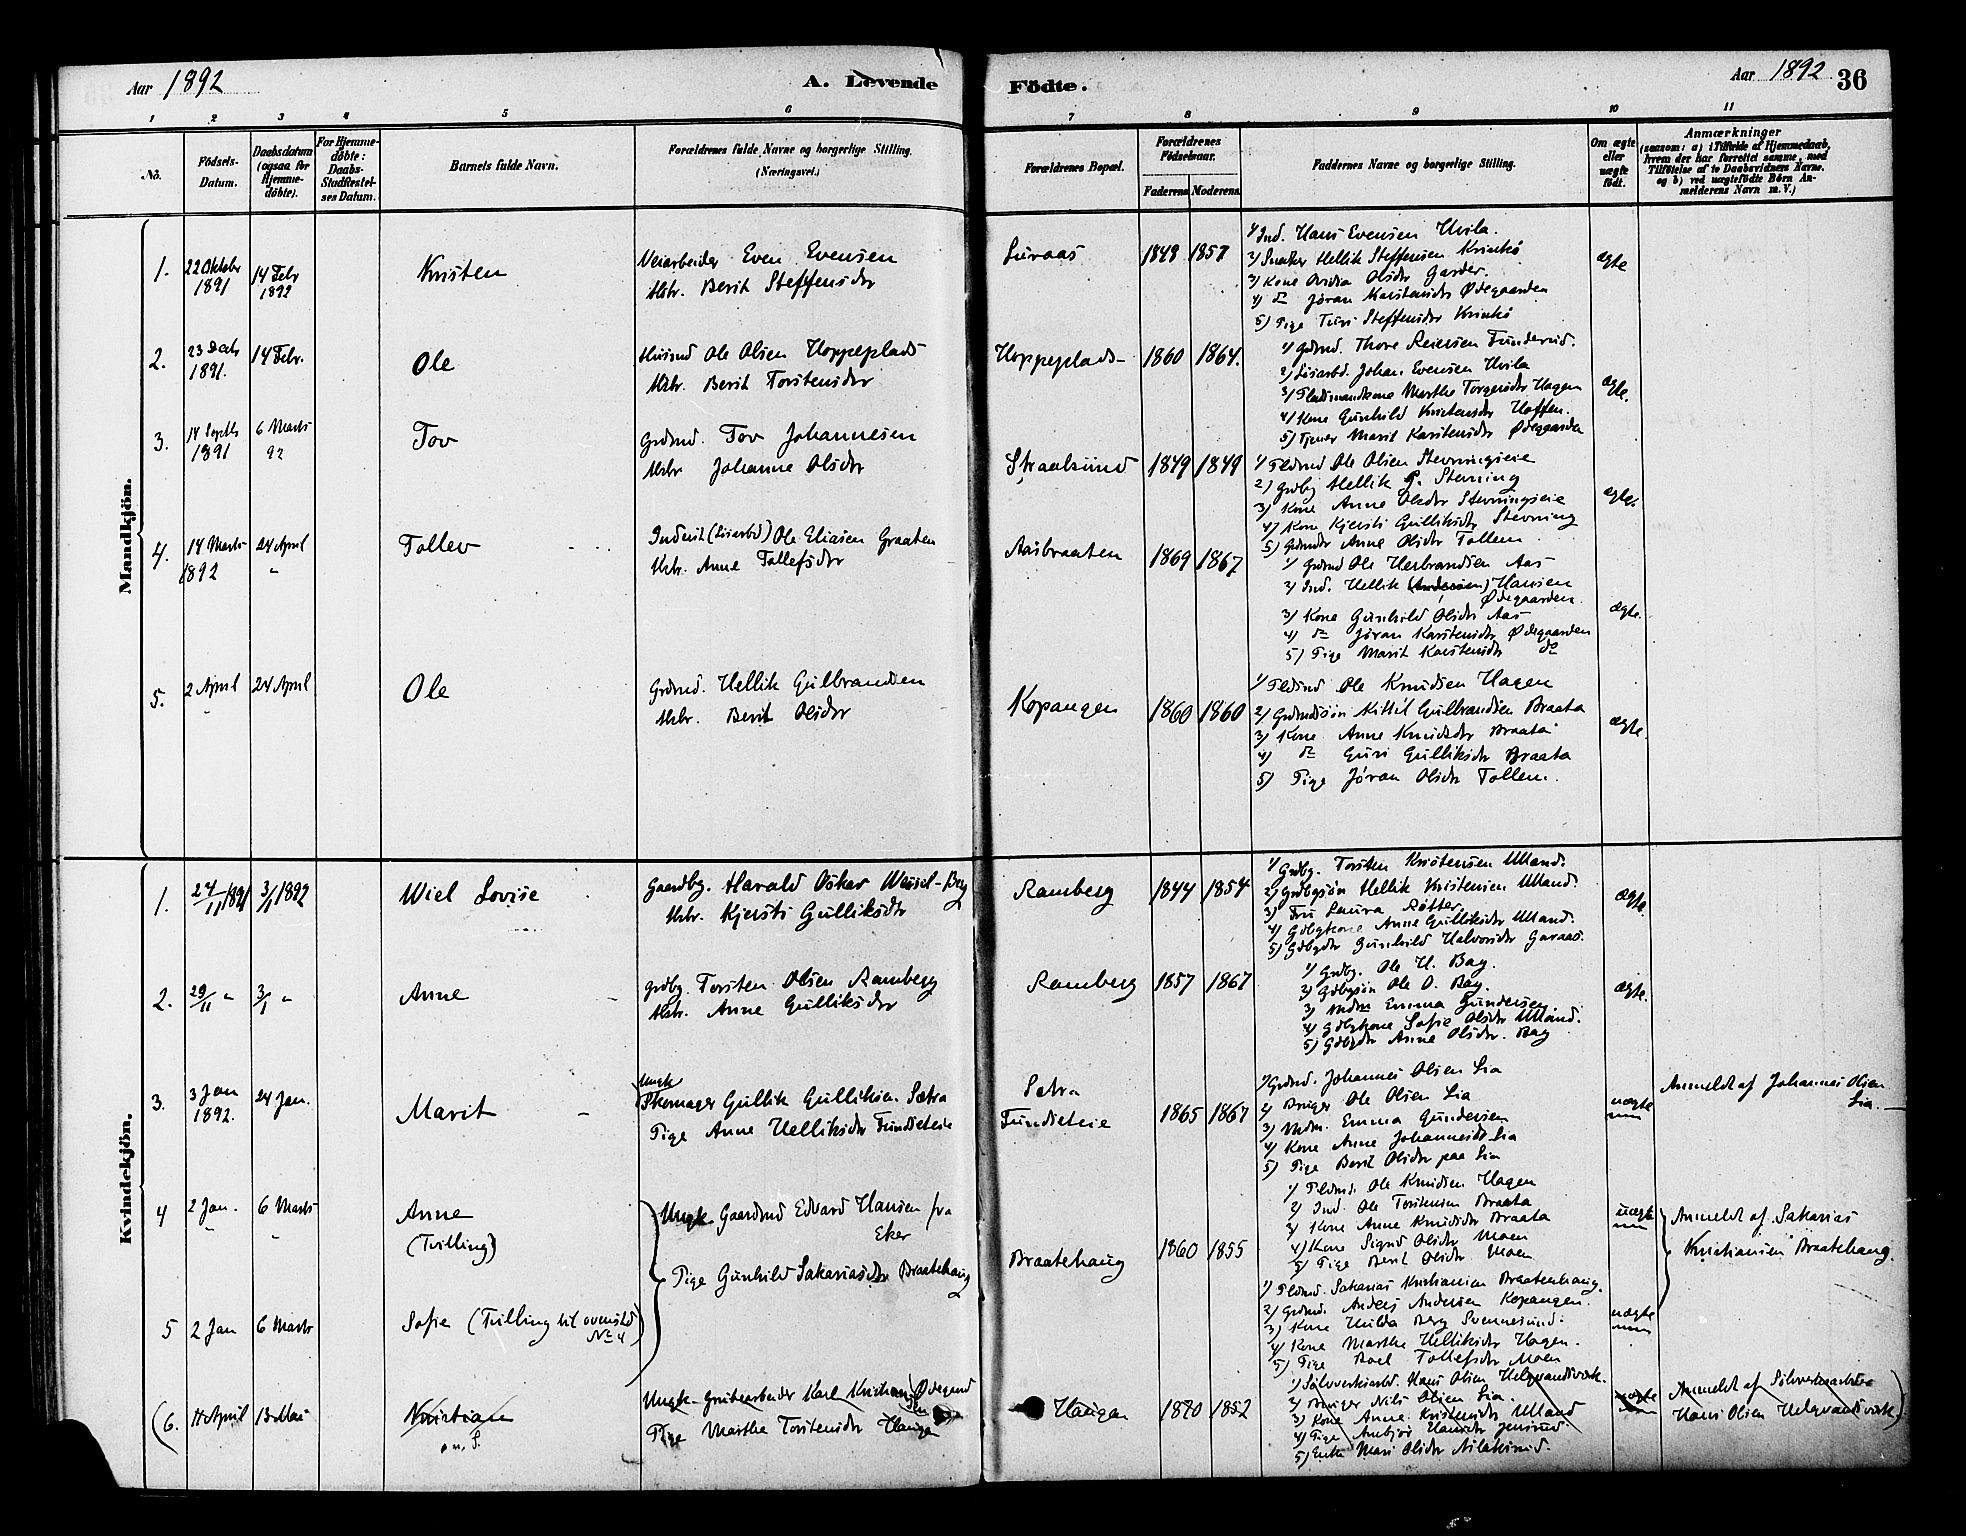 Aar 1892
A. Levende
Födte.
Aar 1892
36
1 2 3 4 5 6 7 8 9 10 11
No.
Födsels-
Datum.
Daabsdatum
(ogsaa for
Hjemme-
döbte).
For Hjemme-
döbte:
Daabs-
Stadfæstel-
ses Datum.
Barnets fulde Navn.
Forældrenes fulde Navne og borgerlige Stilling.
(Næringsvei.)
Forældrenes Bopæl.
Forældrenes
Födselsaar.
Faderens. Moderens.
Faddernes Navne og borgerlige Stilling.
Om ægte
eller
uægte
födt.
Anmærkninger
(saasom: a) i Tilfælde af Hjemmedaab,
hvem der har forrettet samme, med
Tilföielse af to Daabsvidners Navne,
og b) ved uægtefödte Börn An-
melderens Navn m. V.)
Mandkjön.
1. 22 Oktober 1891
14 Febr 1892
Kristen
Veiarbeider Even Evensen
Hstr. Berit Steffensdr
Suraas
1848 1857
1) Ind. Hans Evensen Hvila.
2) Snedker Hellik Steffensen Kvinkö
3) Kone Ovidia Olsdtr Garder.
4) do Jöran Karstensdtr Ødegaarden
5) Pige Turi Steffensdtr Kvinkö
ægte
2. 23 Decb 1891.
14 Febr.
Ole
Husmd Ole Olsen Hoppeplads
Hstr. Berit Torstensdtr
Hoppeplads
1860 1864.
1) Grdmd. Thore Reiersen Funderud.
2) Løsarbd. Johan Evensen Hvila
3) Pladsmandkone Marthe Torgersdtr Hagen
4) Kone Gunhild Kristensdtr Hoffen.
5) Tjener Marit Karstensdtr Ødegaarden
ægte.
3. 14 Septb 1891
6 Marts 92
Tov
Grdmd. Tov Johannesen
Hstr Johanne Olsdtr
Straalsund
1849 1849
1) Pldsmd Ole Olsen Stevningseie
2) Grdbg Hellik G. Stevning
3) Kone Anne Olsdtr Stevningseie
4) Kone Kjersti Gulliksdtr Stevning
5) Grdmdtr Anne Olsdtr Tollem
ægte.
4. 14 Marts 1892
24 April "
Tollev
Inderst (Løsarbd) Ole Eliasen Graaten
Hstr. Anne Tollefsdtr
Aasbraaten
1869 1867
1) Grdmd Ole Herbrandsen Aas
2) Ind. Hellik (Andersen) Hansen
Ødegaarden.
3) Kone Gunhild Olsdtr Aas
4) do Jöran Karstensdtr Ødegaarden
5) Pige Marit Karstensdtr do
ægte.
5. 2 April "
24 April
Ole
Grdmd. Hellik Gulbrandsen
Hstr. Berit Olsdtr
Kopangen
1860 1860
1) Pldsmd Ole Knudsen Hagen
2) Grdmdsön Kittil Gulbrandsen Braata
3) Kone Anne Knudsdtr Braata
4) do Guri Gulliksdtr Braata
5) Pige Jöran Olsdtr Tollem.
ægte.
Kvindekjön.
1. 24/11 1891
3/1 1892
Wiel Lovise
Gaardbg. Harald Oskar Wessel-Berg
Hstr. Kjersti Gulliksdtr
Ramberg
1844 1854
1) Grdbg. Torsten Kristensen Uland.
2) Grdbgsön Hellik Kristensen Uland.
3) Fru Laura Røtter
4) Gdbgkone Anne Gulliksdtr Uland.
5) Gdbgdtr Gunhild Halvorsdtr Garaas.
ægte.
2. 29/11 "
3/1 "
Anne
Grdbg. Torsten Olsen Ramberg
Hstr. Anne Gulliksdtr
Ramberg
1857 1867
1) Grdbg. Ole H. Bay.
2) Gdbgsön Ole O. Bay.
3) Mdm Emma Gundersen
4) Gdbgkone Sofie Olsdtr Uland.
5) Gdbgdtr Anne Olsdtr. Bay
ægte.
3. 3 Jan 1892.
24 Jan.
Marit
Ungk
Skomager Gullik Gulliksen Sætra
Pige Anne Helliksdtr Fundseteie
Setra
Fundseteie
1865 1867
1) Grdmd. Johannes Olsen Lia
2) Bruger Ole Olsen Lia
3) Mdm. Emma Gundersen
4) Kone Anne Johannesdtr Lia
5) Pige Berit Olsdtr paa Lia
uægte
Anmeldt af Johannes Olsen
Lia.
4 2 Jan. "
6 Marts "
Anne
(Tvilling)
Ungk. Gaardmd Edvard Hansen fra
Eker
Pige Gunhild Sakariasdtr Braatehaug
Braatehaug
1860 1855
1) Pldsmd. Ole Knudsen Hagen
2) Ind. Ole Torstensen Braata
3) Kone Anne Knudsdtr Braata
4) Kone Sigrid Olsdtr Moen
5) Pige Berit Olsdtr Moen
uægte
Anmeldt af Sakarias
Kristiansen Braatehaug.
5 2 Jan
6 Marts
Sofie (Tvilling til ovenstd
No 4)
1) Pldsmd. Sakarias Kristiansen Braatenhaug.
2) Grdmd. Anders Andersen Kopangen.
3) Kone Hulda Berg Svennesund.
4) Kone Marthe Helliksdtr Hagen.
5) Pige Boel Tollefsdtr Moen
uægte
(6. 11 April
13 Mai
Kristian
Ungk. Grubearbeider Karl Kristiansen Ødegrd
Pige Marthe Torstensdtr Haugen
Haugen
1870 1852
1) Sølvverksarbd. Hans Olsen Helgvandsvæk.
2) Bruger Nils Olsen Lia.
3) Kone Anne Kristensdtr Uland
4) Pige Anbjör Hansdtr Jensrud.
5) Enke Mari Olsdtr Aslaksrud.
uægte
Anmeldt af Sølvverksarbder
Hans Olsen Helgvandsvæk)